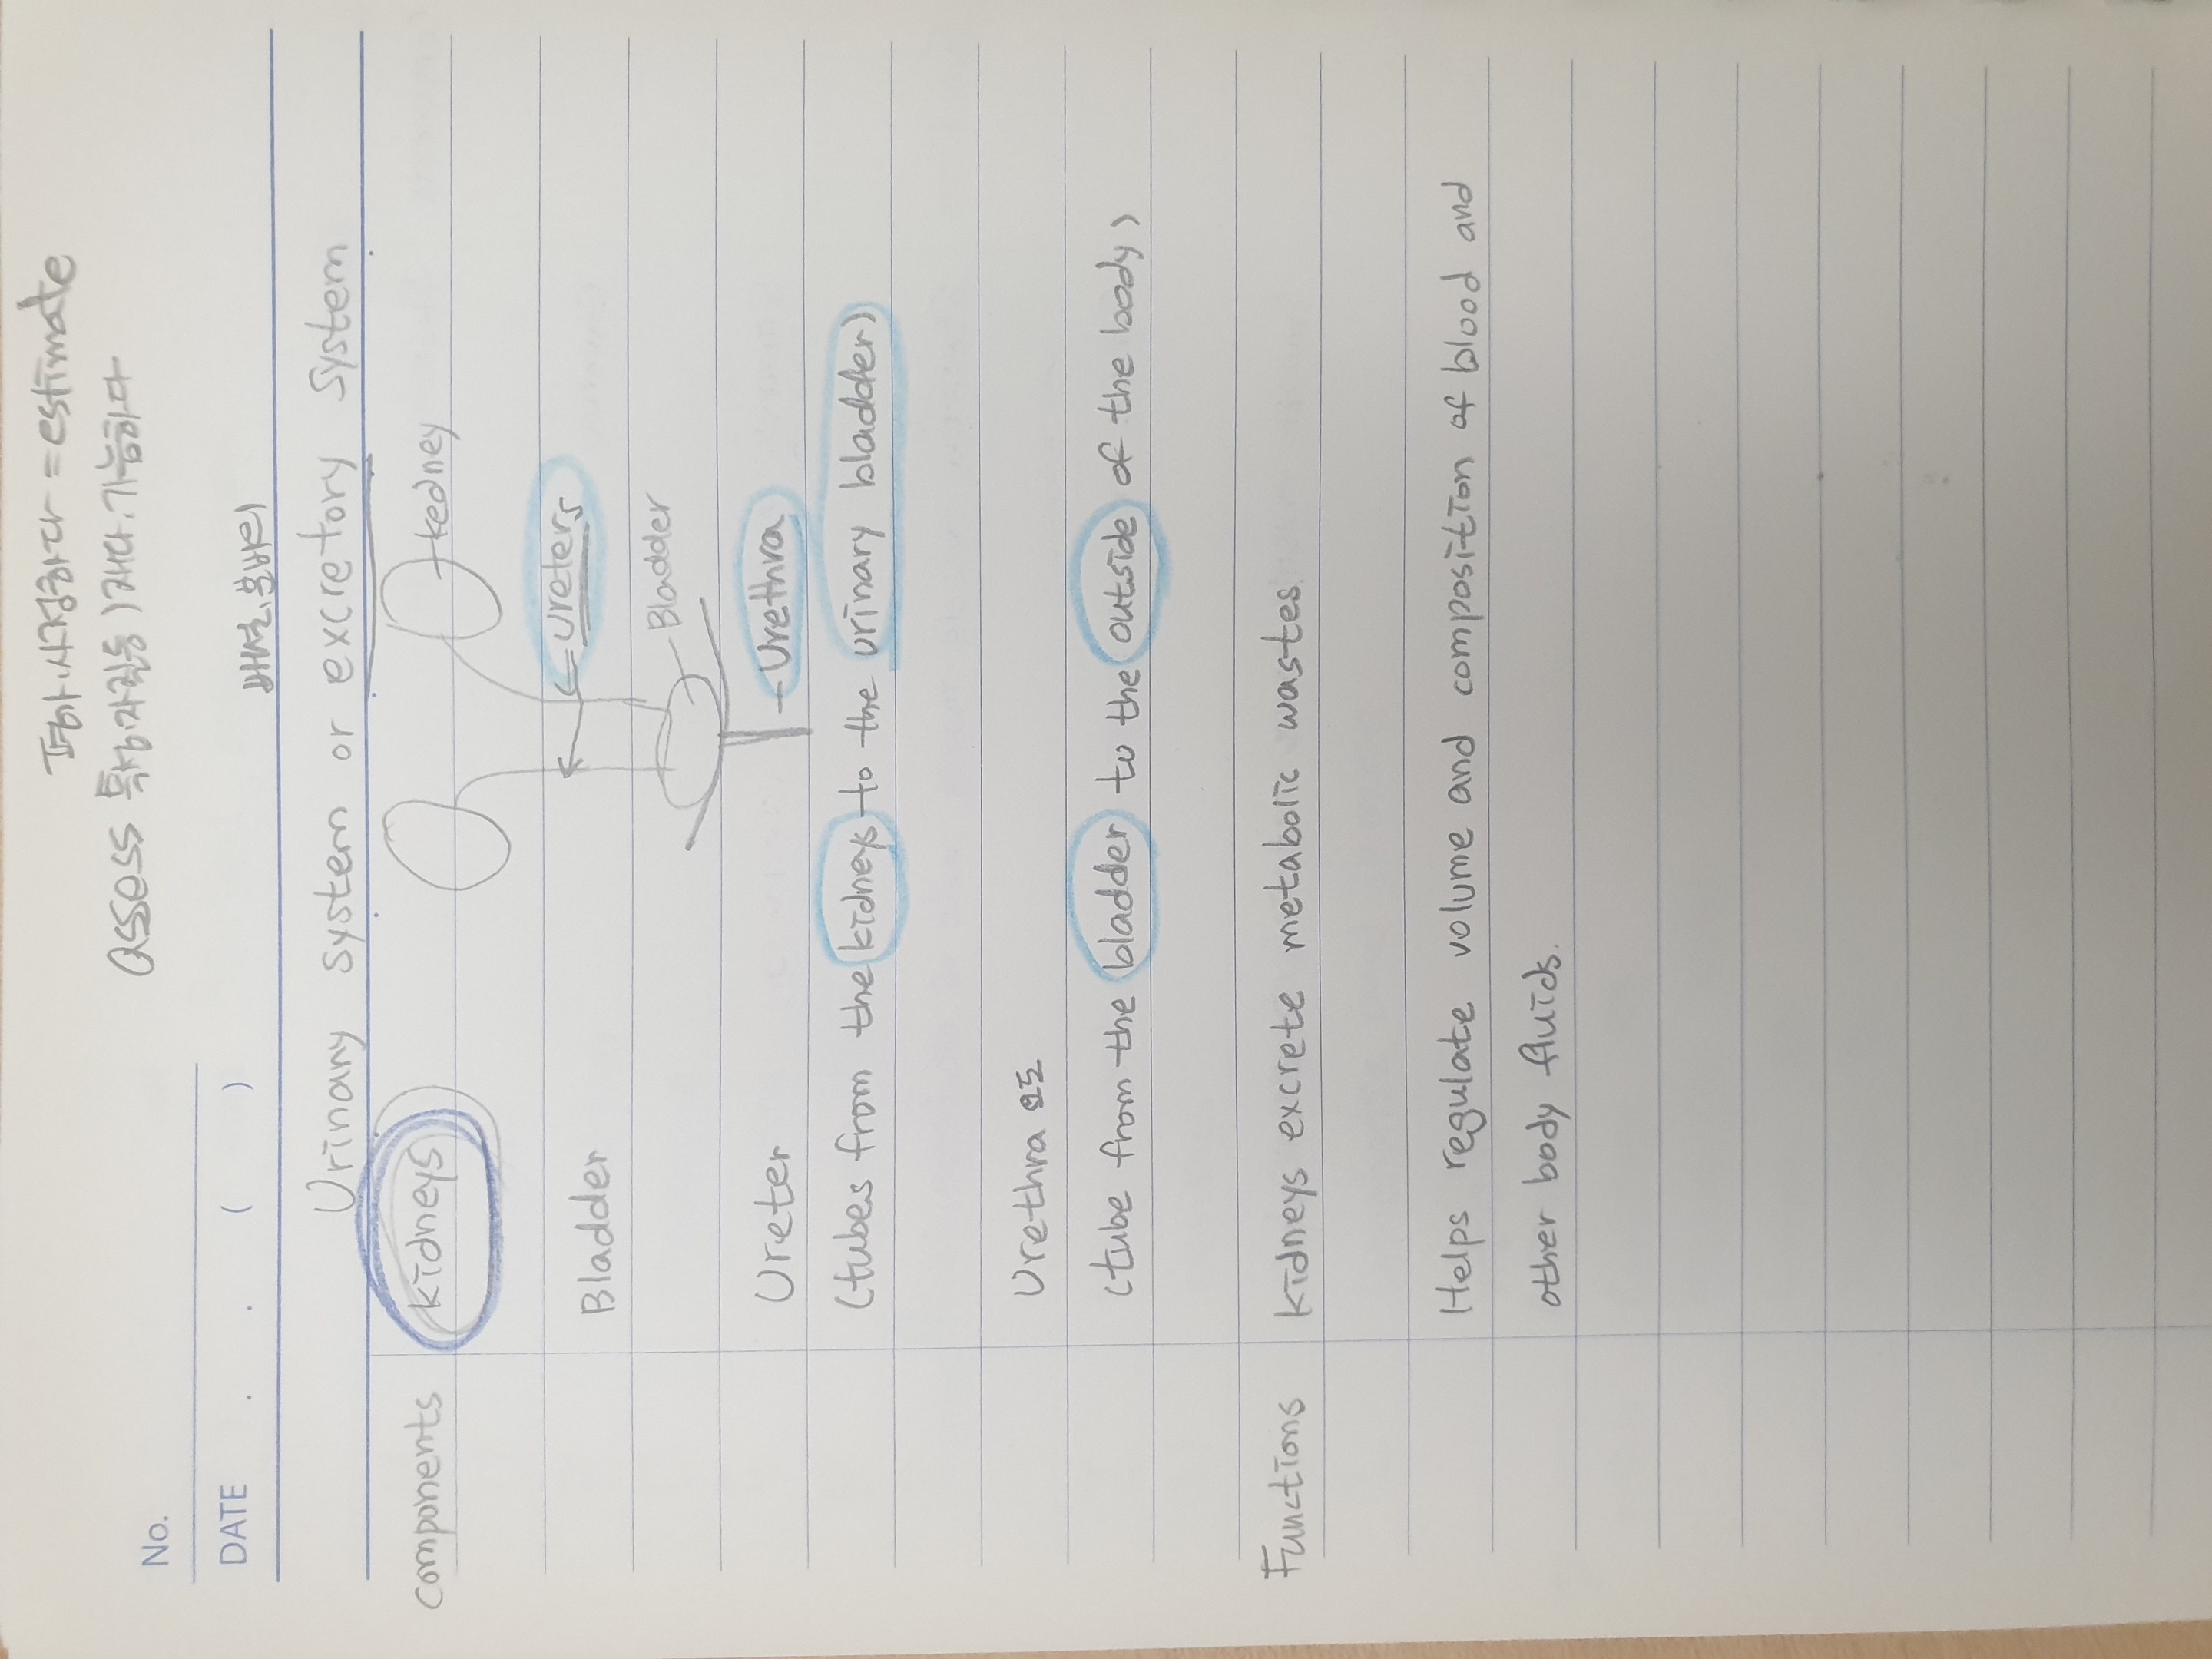 평가·사정하다 = estimate
assess 특성·자질 등) 재다. 가늠하다
No.
DATE . . ( )
배설, 분비
Urinary system or excretory system
components kidneys kedney
ureters
Bladder Bladder
Ureter Urethra
(tubes from the kidneys to the urinary bladder)
Urethra 요도
(tube from the bladder to the outside of the body)
Functions kidneys excrete metabolic wastes.
Helps regulate volume and composition of blood and
other body fluids.